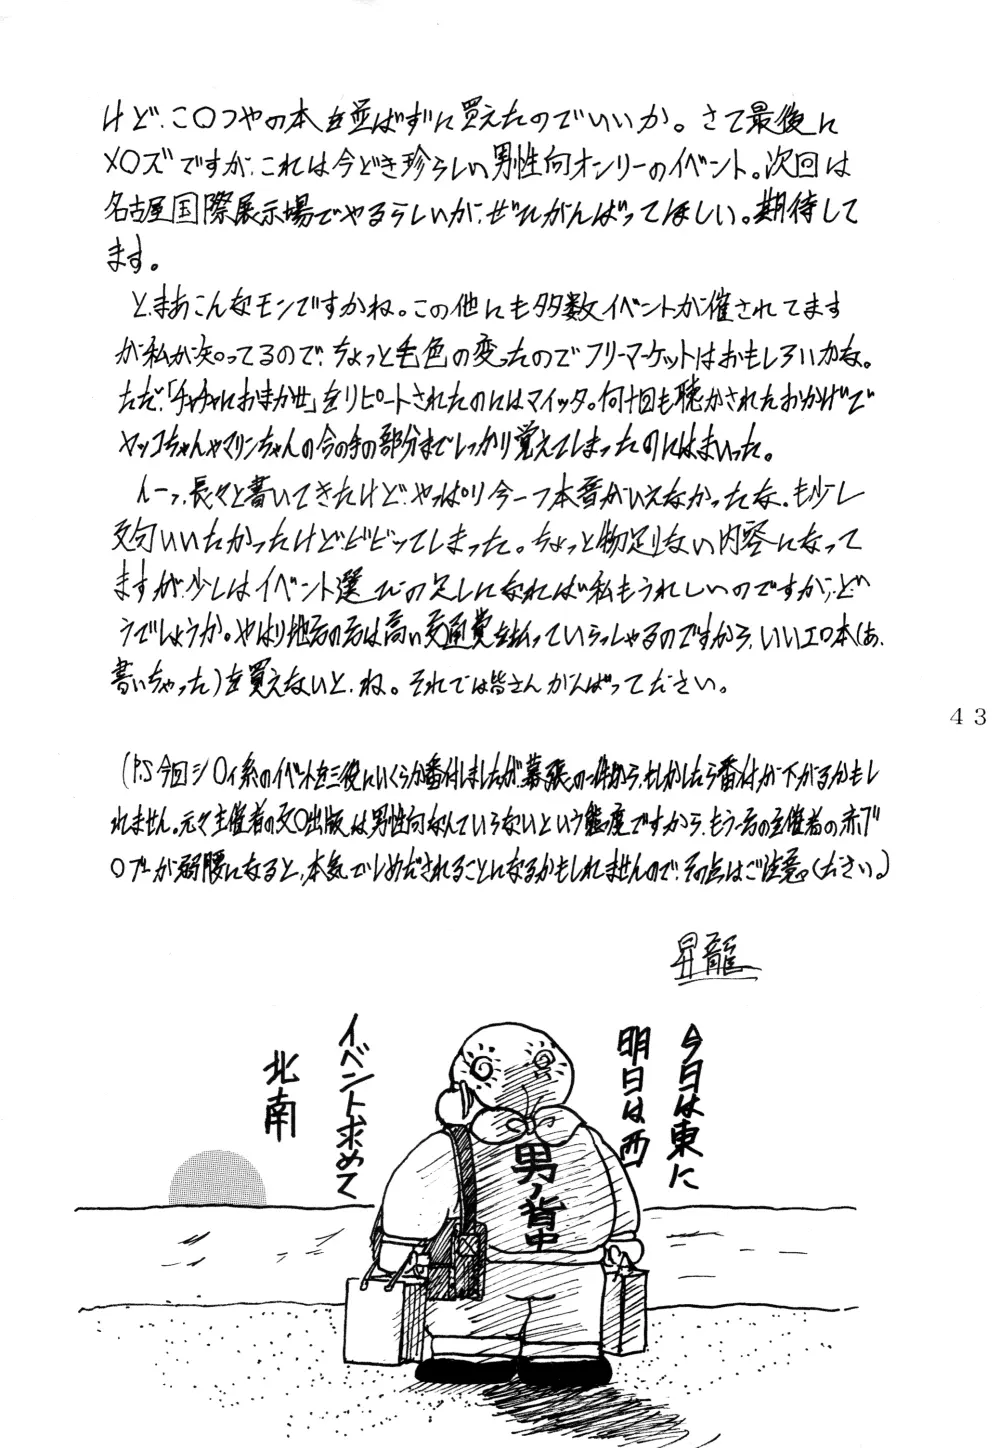 けど、こ〇つやの本を並ばずに買えたのでいいか。さて最後に
メ〇ズですが、これは今どき珍らしい男性向オンリーのイベント。次回は
名古屋国際展示場でやるらしいが、ぜひがんばってほしい。期待して
ます。
と、まあこんなモンですかね。この他にも多数イベントが催されてます
が私が知ってるので、ちょっと毛色の変ったのでフリーマーケットはおもしろいかな。
ただ、「チャチャにおまかせ」をリピートされたのにはマイッタ。何十回も聴かされたおかげで
ヤッコちゃんやマリンちゃんの合の手の部分までしっかり覚えてしまったのにはまいった。
んーっ、長々と書いてきたけど、やっぱり今一つ本音がいえなかったな。も少し
文句いいたかったけどビビってしまった。ちょっと物足りない内容になって
ますが、少しはイベント選びの足しになれば私もうれしいのですが、ど
うでしょうか。やはり地元の方は高い交通費を払っていらっしゃるのですから、いいエロ本(あ、
書いちゃった)を買えないと、ね。それでは皆さんがんばってください。
43
(P.S 今回シ〇ィ系のイベントを三役にいくらか番付しましたが、幕張の一件から、もしかしたら番付が下がるかもし
れません。元々主催者の文〇出版は男性向なんていらないという態度ですから、もう一方の主催者の赤ブ
〇ブーが弱腰になると、本気でしめだされることになるかもしれませんので、その点はご注意。ください。)
昇龍
今日は東に
明日は西
イベント求めて
北南
男ノ背中